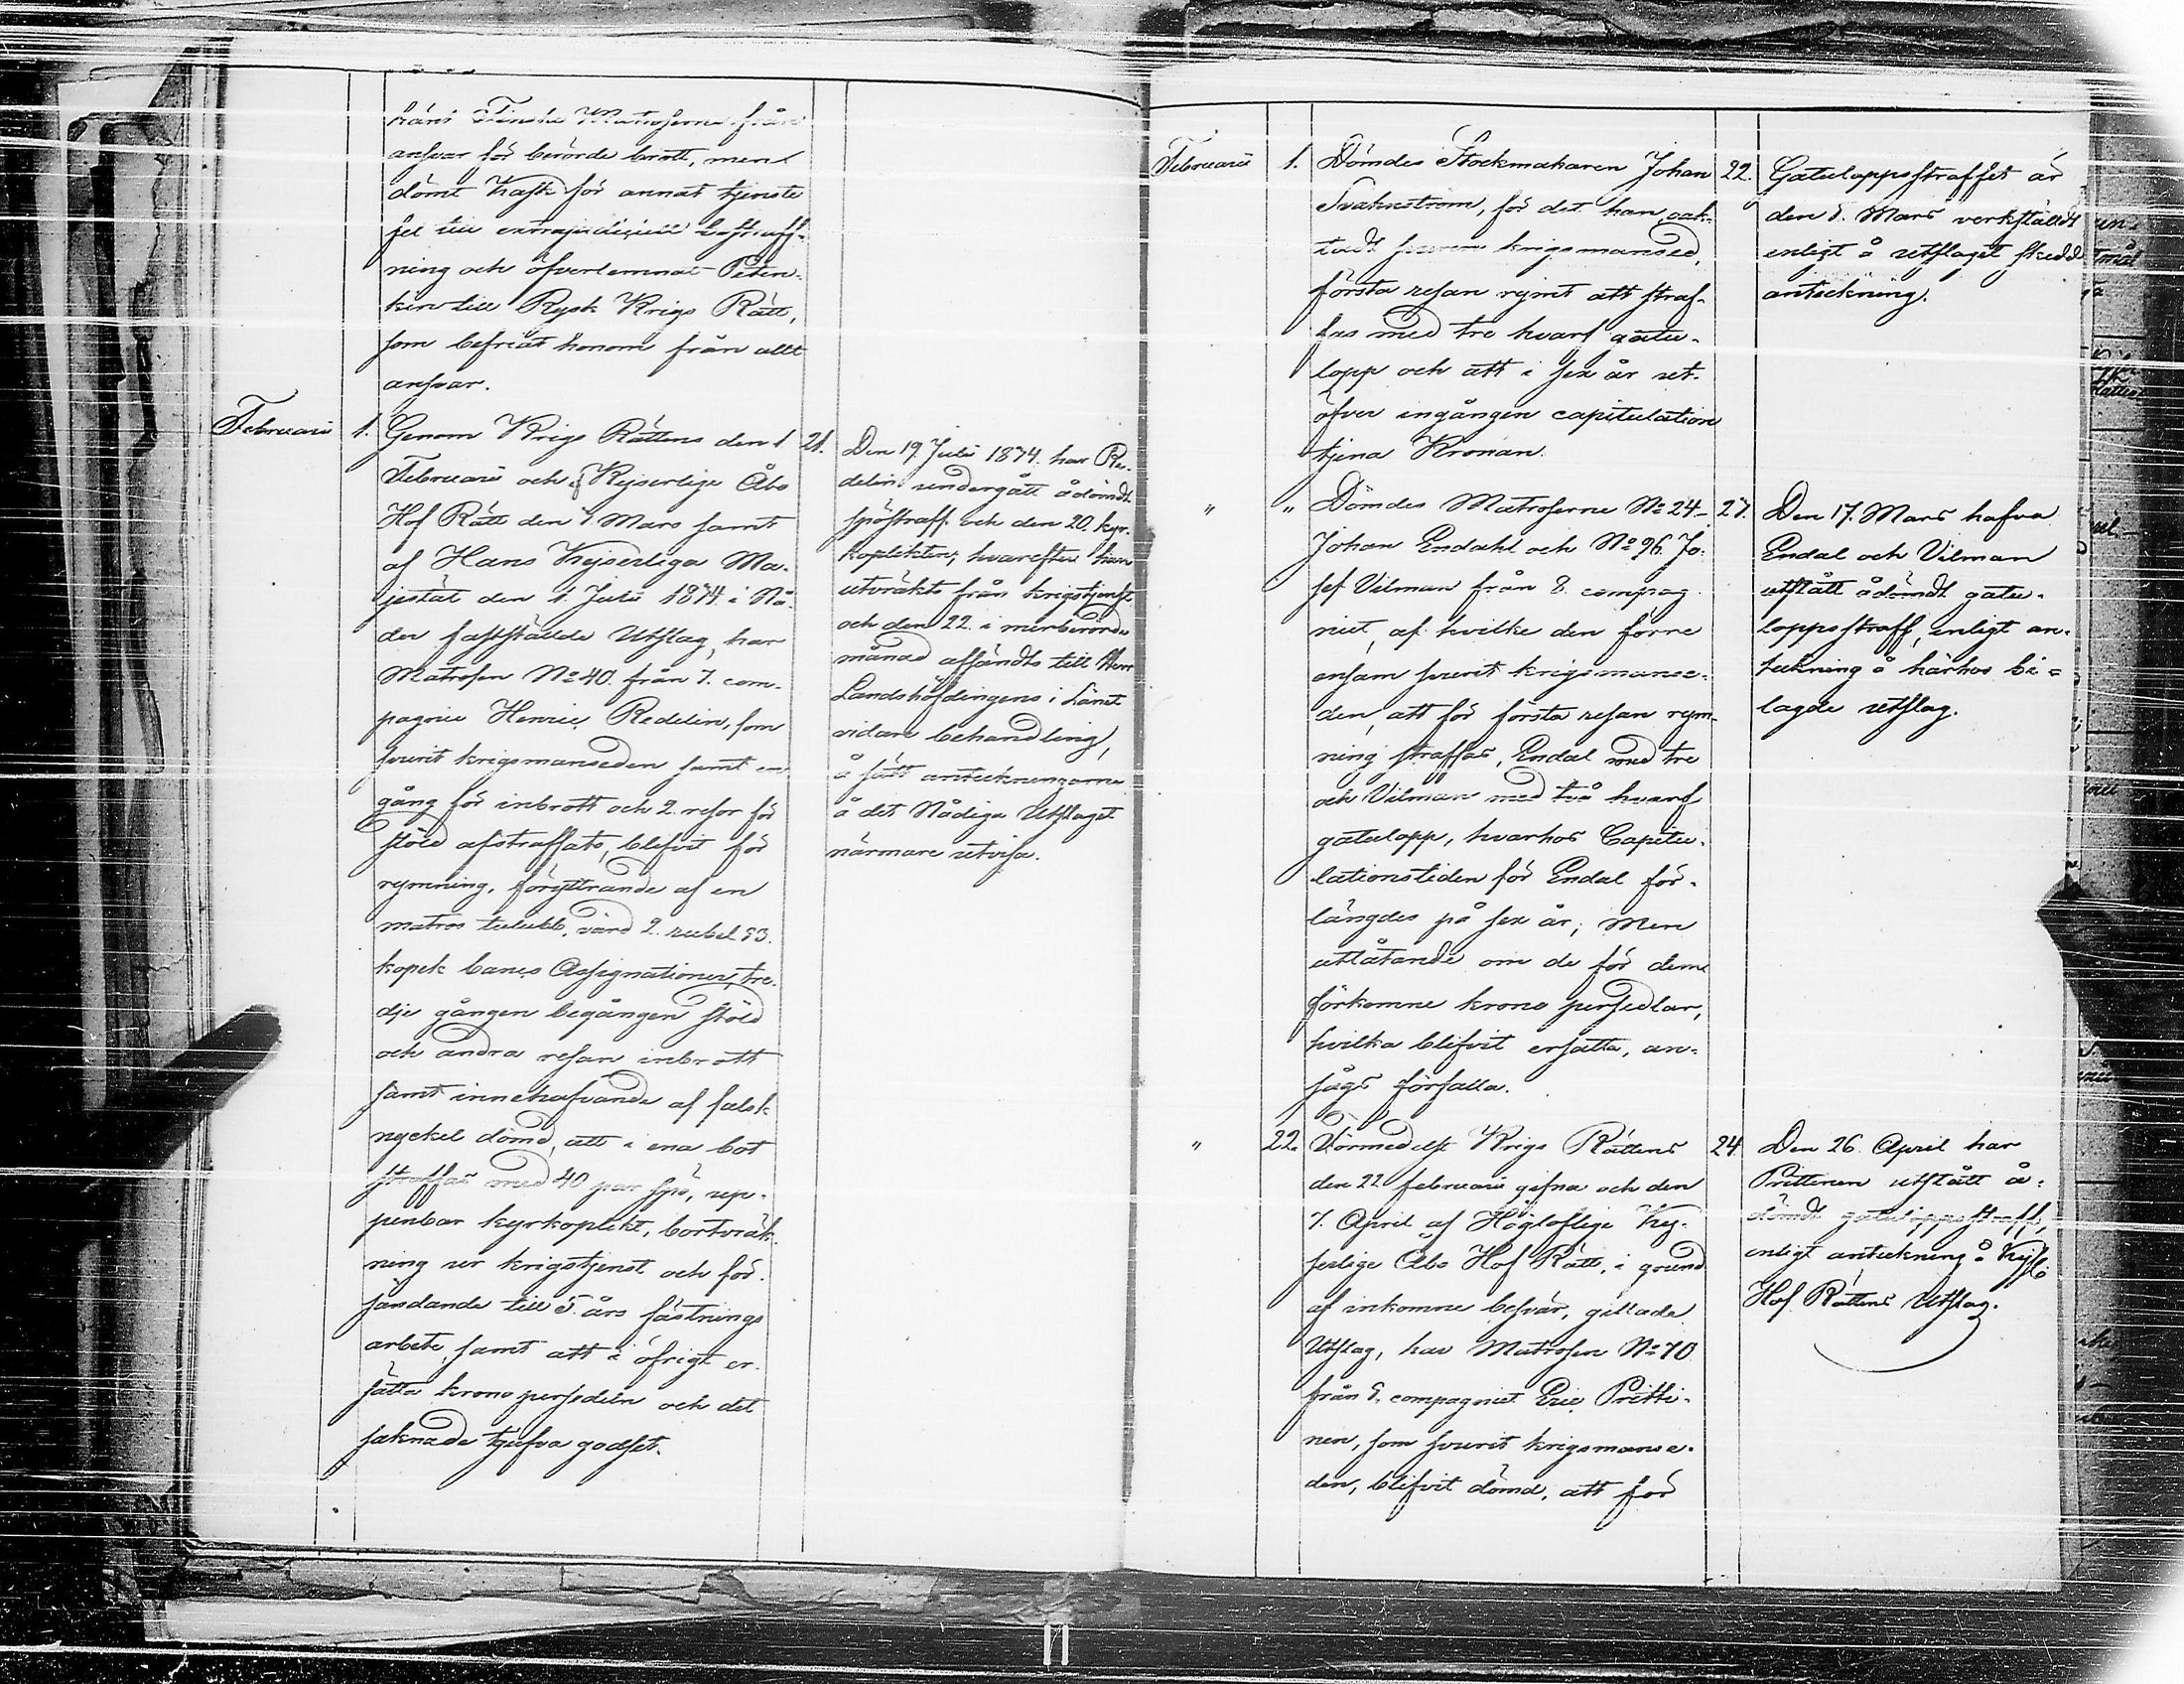 känt Finske Matroserne från
ansvar för berörde brott, men
dömt Kask för annat tjenste
fel till extrajudiciell bestraff-
ning och öfverlemnat Peten-
kin till Rysk Krigs Rätt,
som befriat honom från allt
ansvar.
Februarii 1. Genom Krigs Rättens den 1 21.
Februarii och Kejserlige Åbo
Hof Rätt den 7. Mars samt
af Hans Kejserliga Ma-
jestät den 1. Julii 1874. i Nå-
der fastställde Utslag, har
Matrosen No 40. från 7. com-
pagnie Henric Redelin, som
svurit krigsmanseden samt en
gång för inbrott och 2. resor för
stöld afstraffats, blifvit för
rymning, föryttrande af en
matros tulubb, värd 2. rubel 93.
kopek banco Assignationer, tre-
dje gången begången stöld
och andra resan inbrott
samt innehafvande af falsk
nyckel dömd, att i ena bot
straffas med 40 par spö, up-
penbar kyrkoplikt, bortvräk-
ning ur krigstjenst och för-
sändande till 5. års fästnings
arbete, samt att i öfrigt er-
sätta krono persedeln och det
saknade tjufva godset.
Den 19. Julii 1874. har Re-
delin undergått ådömdt
spöstraff och den 20. kyr-
koplikten; hvarefter han
utvräkts från krigstjenst
och den 22. i merberörde
månad affändts till Herr
Landshöfdingens i Länet
vidare behandling,
å sätt anteckningarne
å det Nådiga Utslaget
närmare utvisa.
Februarii 1. Dömdes Stockmakaren Johan 22.
Tvakuström, för det han, oak-
tadt svuren krigsmansed,
första resan rymt att straf-
fas med tre hvarf gatu-
lopp och att i sex år ut-
öfver ingången capitulation
tjena Kronan.
Gatuloppsstraffet är
den 8. Mars verkställdt
enligt å utslaget skedd
anteckning.
" " Dömdes Matroserne No 24 27.
Johan Endahl och No 96. Jo-
sef Vilman från 8. compag-
niet, af hvilke den förre
ensam svurit krigsmanse-
den, att för första resan rym-
ning straffas, Endal med tre
och Vilman med två hvarf
gatulopp, hvarhos Capitu-
lationstiden för Endal för-
längdes på sex år; men
utlåtande om de för dem
förkomne krono persedlar,
hvilka blifvit ersatta, an-
sågs förfalla.
Den 17. Mars hafva
Endal och Vilman
utstått ådömdt gatu-
loppsstraff, enligt an-
teckning å härhos bi-
lagde utslag.
" 22. Förmedelst Krigs Rättens 24.
den 22 februarii gifna och den
7. April af Höglofliga Kej-
serlige Åbo Hof Rätt, i grund
af inkomne besvär, gillade
Utslag, har Matrosen No 70
från 8. compagniet Eric Pritti-
nen, som svurit krigsmanse-
den, blifvit dömd, att för
Den 26. April har
Prittinen utstått å-
dömdt gatuloppsstraff,
enligt anteckning å Kejserl:
Hof Rättens Utslag.